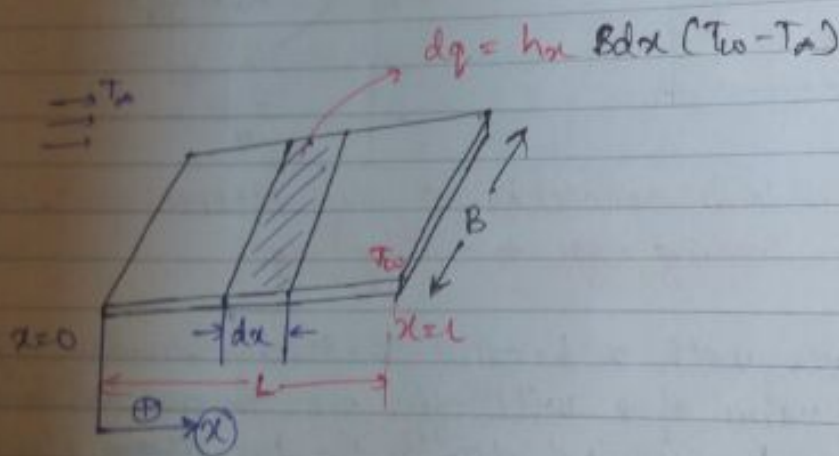 dq = hx Bdx (Tw - T∞)
T∞
Tw
B
x=0
dx
x=L
L
⊕ x